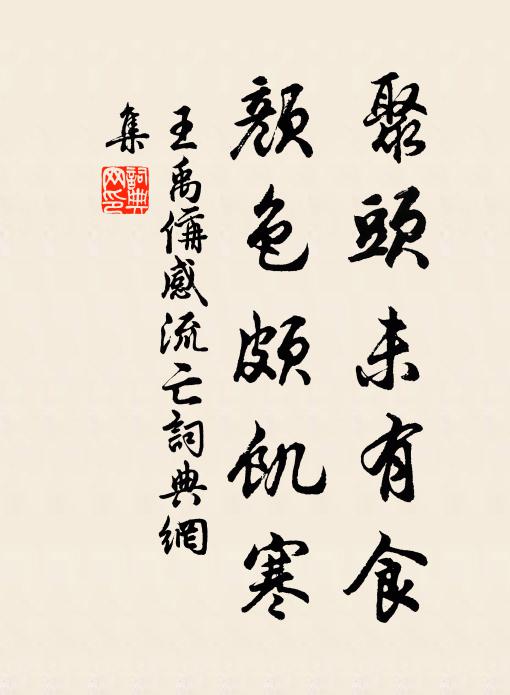 聚頭未有食
顏色頗飢寒
王禹偁感流亡詞典網
集
詞典網印